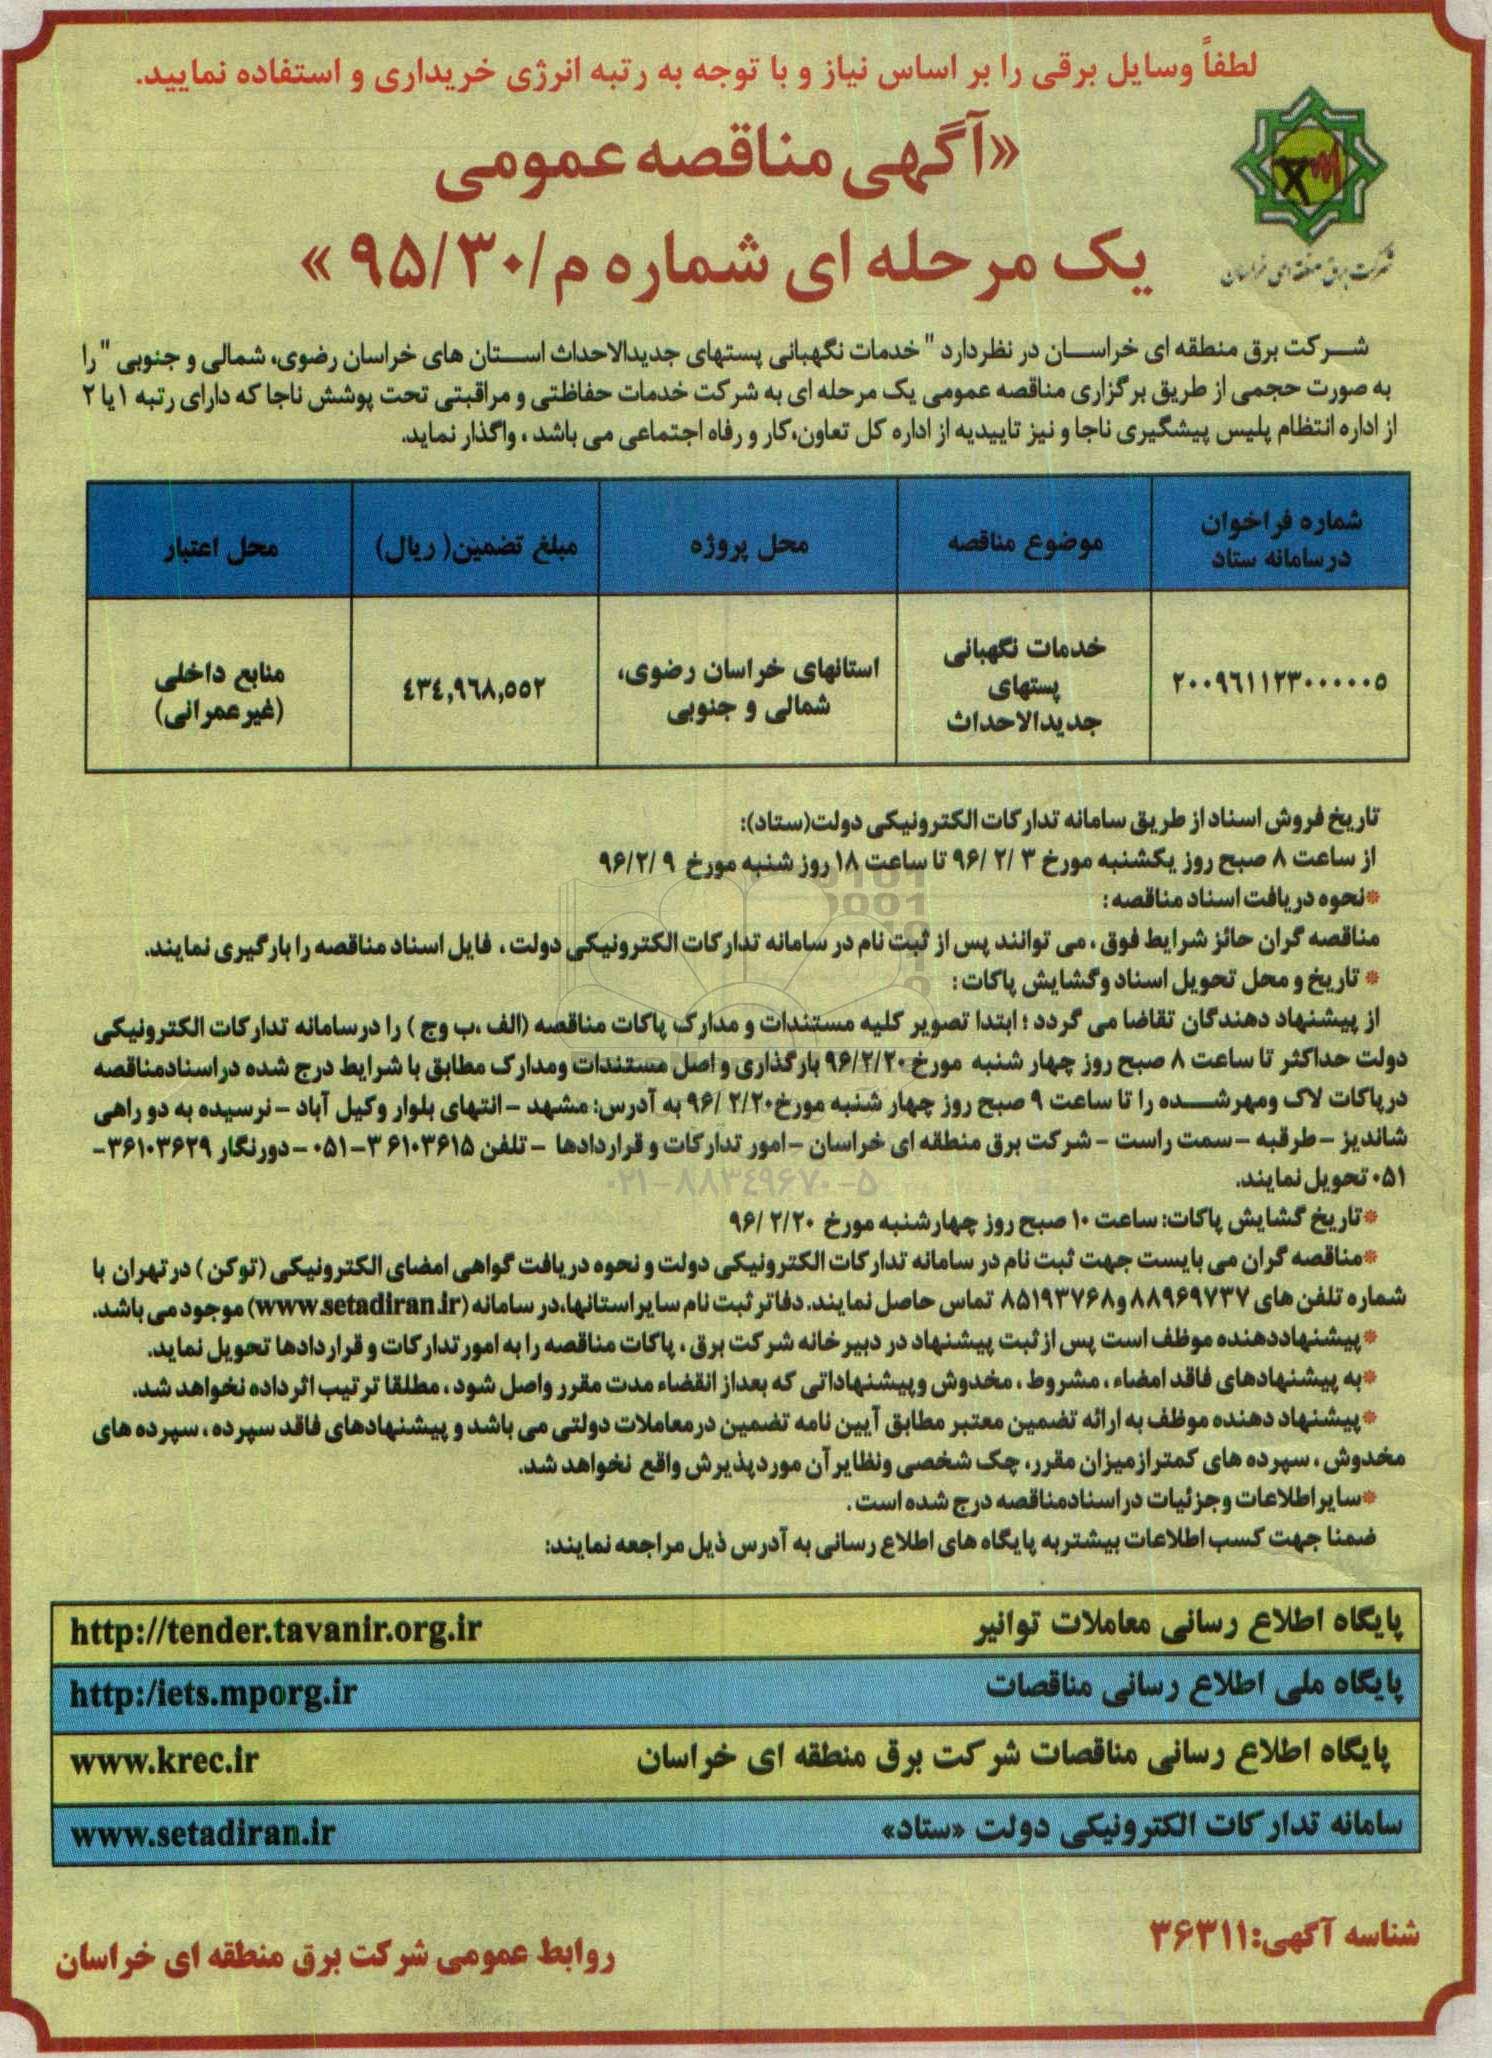 لطفاً وسایل برقی را بر اساس نیاز و با توجه به رتبه انرژی خریداری و استفاده نمایید.
«آگهی مناقصه عمومی
یک مرحله ای شماره م/۹۵/۳۰ »
شرکت برق منطقه ای خراسان
شرکت برق منطقه ای خراسان در نظردارد " خدمات نگهبانی پستهای جدیدالاحداث استان های خراسان رضوی، شمالی و جنوبی " را
به صورت حجمی از طریق برگزاری مناقصه عمومی یک مرحله ای به شرکت خدمات حفاظتی و مراقبتی تحت پوشش ناجا که دارای رتبه ۱ یا ۲
از اداره انتظام پلیس پیشگیری ناجا و نیز تاییدیه از اداره کل تعاون،کار و رفاه اجتماعی می باشد ، واگذار نماید.
شماره فراخوان درسامانه ستاد | موضوع مناقصه | محل پروژه | مبلغ تضمین( ریال) | محل اعتبار
۲۰۰۹۶۱۱۲۳۰۰۰۰۰۰۵ | خدمات نگهبانی پستهای جدیدالاحداث | استانهای خراسان رضوی، شمالی و جنوبی | ٤٣٤,٩٦٨,٥٥٢ | منابع داخلی (غیرعمرانی)
تاریخ فروش اسناد از طریق سامانه تدارکات الکترونیکی دولت(ستاد):
از ساعت ۸ صبح روز یکشنبه مورخ ۳ /۲ /۹۶ تا ساعت ۱۸ روز شنبه مورخ ۹ /۹۶/۲
*نحوه دریافت اسناد مناقصه :
مناقصه گران حائز شرایط فوق ، می توانند پس از ثبت نام در سامانه تدارکات الکترونیکی دولت ، فایل اسناد مناقصه را بارگیری نمایند.
* تاریخ و محل تحویل اسناد وگشایش پاکات :
از پیشنهاد دهندگان تقاضا می گردد ؛ ابتدا تصویر کلیه مستندات و مدارک پاکات مناقصه (الف ،ب وج ) را درسامانه تدارکات الکترونیکی
دولت حداکثر تا ساعت ۸ صبح روز چهار شنبه مورخ ۹۶/۲/۲۰ بارگذاری و اصل مستندات ومدارک مطابق با شرایط درج شده دراسنادمناقصه
درپاکات لاک ومهرشده را تا ساعت ۹ صبح روز چهار شنبه مورخ۲/۲۰ /۹۶ به آدرس: مشهد - انتهای بلوار وکیل آباد - نرسیده به دو راهی
شاندیز - طرقبه - سمت راست - شرکت برق منطقه ای خراسان - امور تدارکات و قراردادها - تلفن ۳۶۱۰۳۶۱۵-۰۵۱ - دورنگار ۳۶۱۰۳۶۲۹-
۰۵۱ تحویل نمایند.
۰۲۱-۸۸۳۴۹۶۷۰-۵
*تاریخ گشایش پاکات: ساعت ۱۰ صبح روز چهارشنبه مورخ ۲/۲۰ /۹۶
*مناقصه گران می بایست جهت ثبت نام در سامانه تدارکات الکترونیکی دولت و نحوه دریافت گواهی امضای الکترونیکی (توکن ) درتهران با
شماره تلفن های ۸۸۹۶۹۷۳۷ و۸۵۱۹۳۷۶۸ تماس حاصل نمایند. دفاتر ثبت نام سایر استانها،در سامانه (www.setadiran.ir) موجود می باشد.
*پیشنهاددهنده موظف است پس از ثبت پیشنهاد در دبیرخانه شرکت برق ، پاکات مناقصه را به امور تدارکات و قراردادها تحویل نماید.
*به پیشنهادهای فاقد امضاء ، مشروط ، مخدوش وپیشنهاداتی که بعداز انقضاء مدت مقرر واصل شود ، مطلقا ترتیب اثر داده نخواهد شد.
*پیشنهاد دهنده موظف به ارائه تضمین معتبر مطابق آیین نامه تضمین درمعاملات دولتی می باشد و پیشنهادهای فاقد سپرده ، سپرده های
مخدوش ، سپرده های کمترازمیزان مقرر، چک شخصی ونظایرآن موردپذیرش واقع نخواهد شد.
*سایراطلاعات وجزئیات دراسنادمناقصه درج شده است .
ضمنا جهت کسب اطلاعات بیشتربه پایگاه های اطلاع رسانی به آدرس ذیل مراجعه نمایند:
پایگاه اطلاع رسانی معاملات توانیر http://tender.tavanir.org.ir
پایگاه ملی اطلاع رسانی مناقصات http:/iets.mporg.ir
پایگاه اطلاع رسانی مناقصات شرکت برق منطقه ای خراسان www.krec.ir
سامانه تدارکات الکترونیکی دولت «ستاد» www.setadiran.ir
شناسه آگهی:۳۶۳۱۱
روابط عمومی شرکت برق منطقه ای خراسان